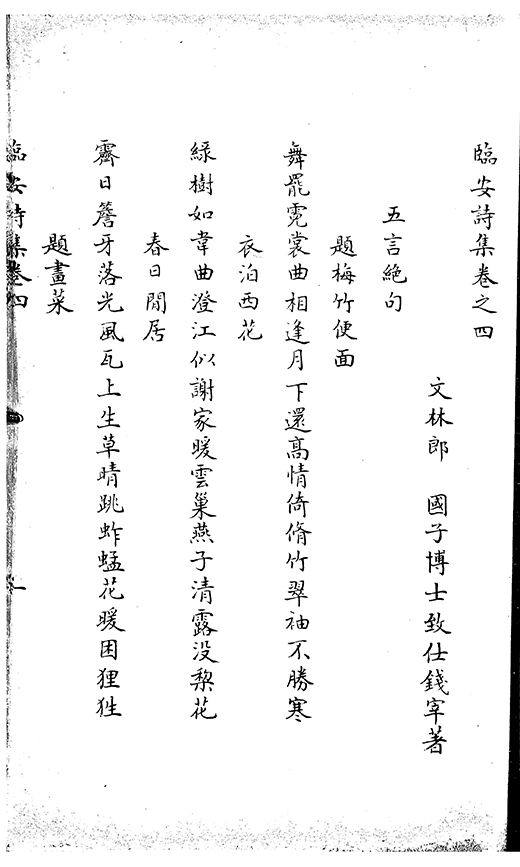 臨安詩集卷之四
文林郎　國子博士致仕錢宰著
五言絕句
題梅竹便面
舞罷霓裳曲相逢月下還高情倚脩竹翠袖不勝寒
衣泊西花
綠樹如韋曲澄江似謝家暖雲巢燕子清露没棃花
春日閒居
霽日簷牙落光風瓦上生草晴跳蚱蜢花暖困狸狌
題畫菜
臨安詩集卷四
一